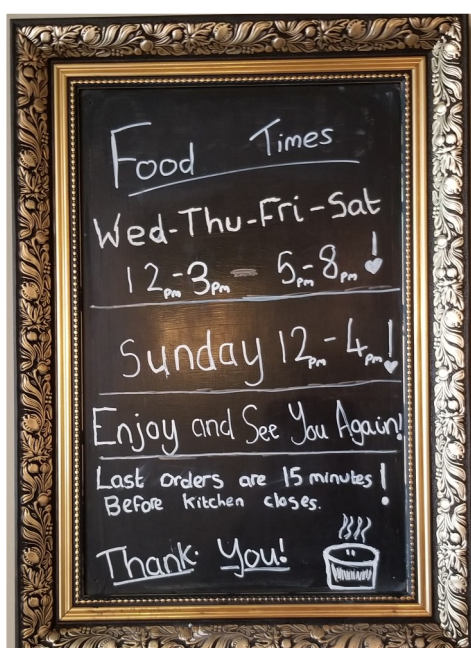 Food Times
Wed-Thu-Fri-Sat
12pm-3pm - 5pm-8pm!
Sunday 12pm-4pm!
Enjoy and See You Again!
Last orders are 15 minutes!
Before kitchen closes.
Thank. You!